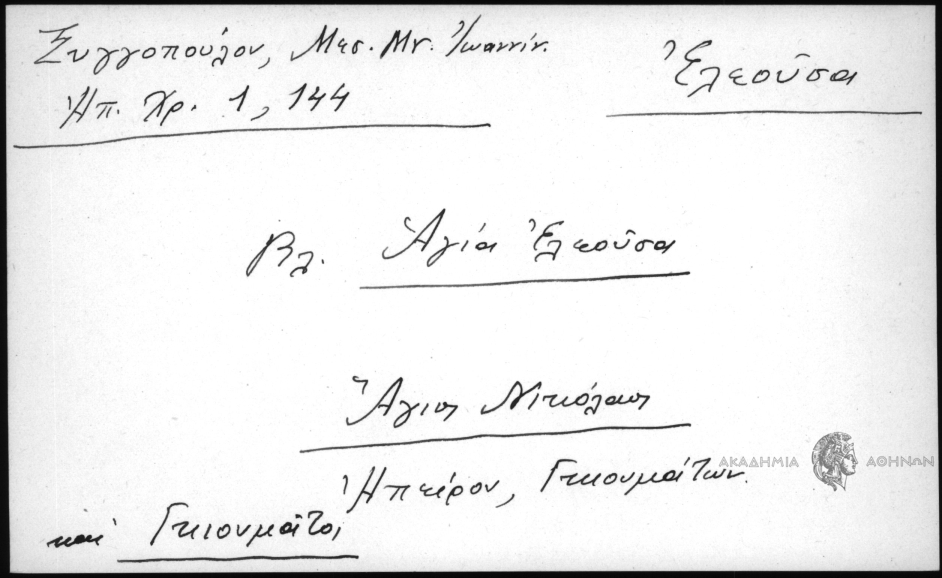 Ξυγγοπούλου, Μεσ. Μν. Ἰωαννίν.
Ἠπ. Χρ. 1, 144
Ἐλεοῦσα
Βλ. Ἁγία Ἐλεοῦσα
Ἅγιος Νικόλαος
Ἠπείρου, Γκιουμάτων.
καὶ Γκιουμᾶτοι
ΑΚΑΔΗΜΙΑ ΑΘΗΝΩΝ